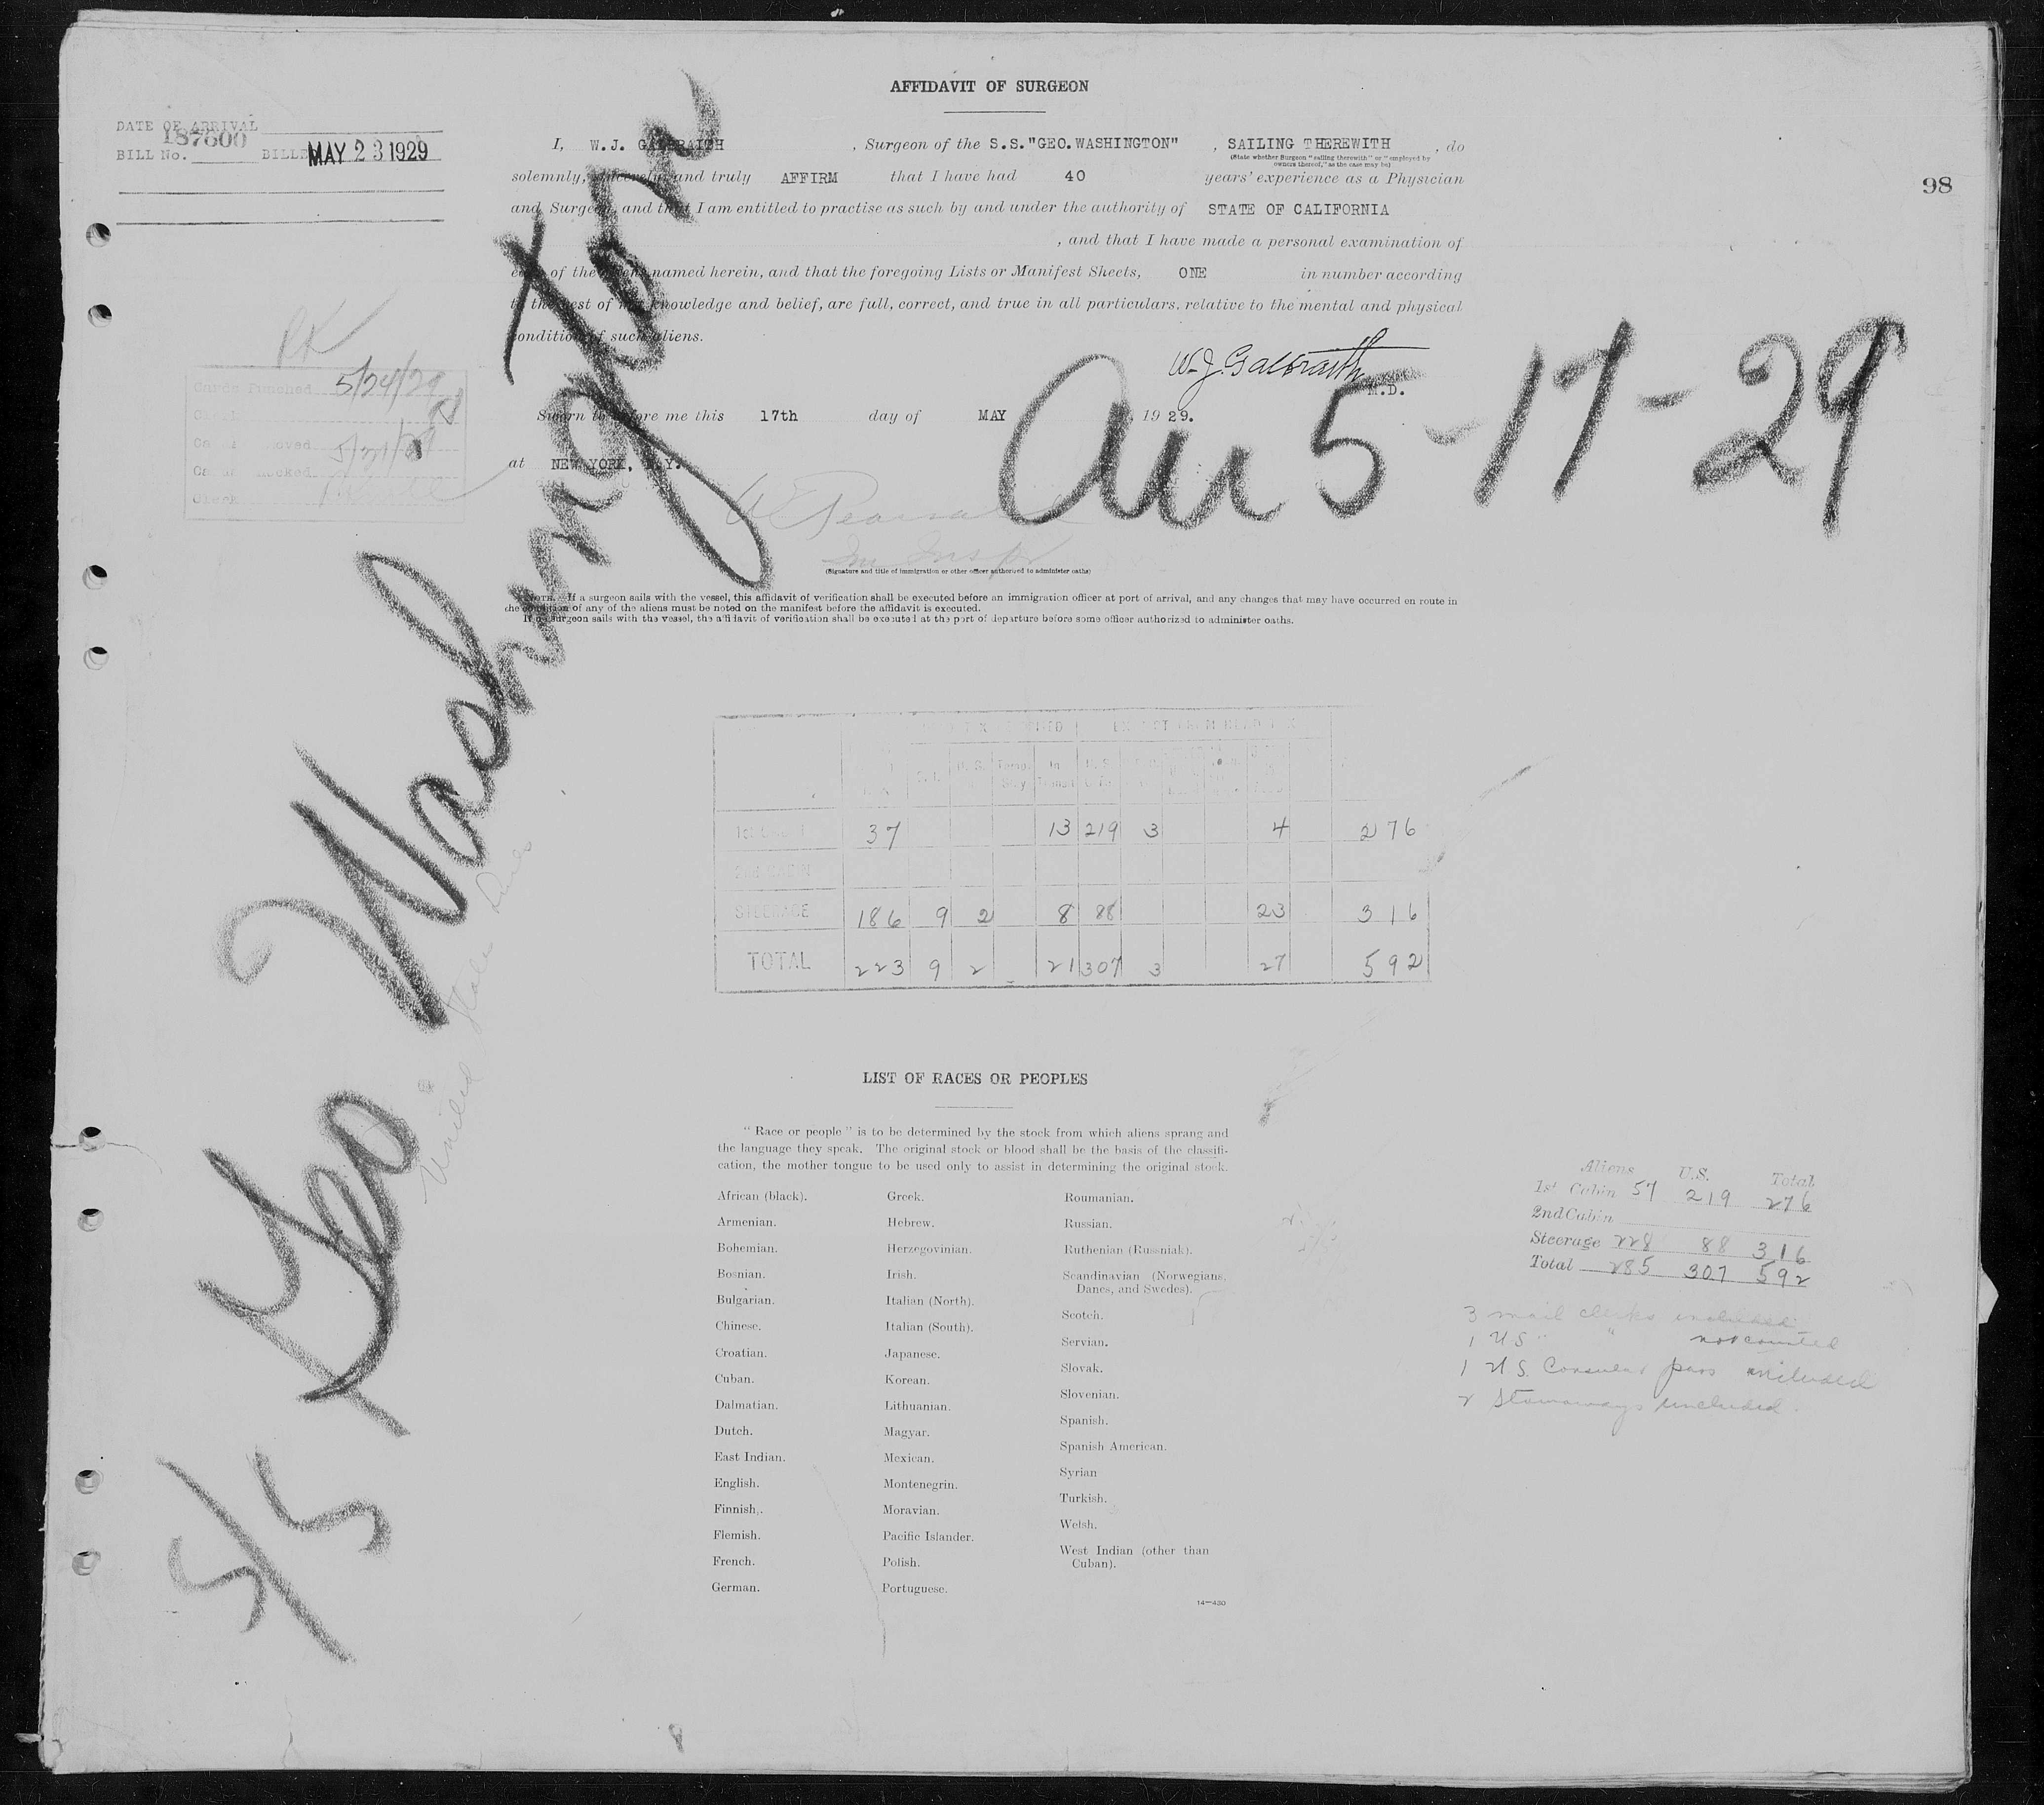 AFFIDAVIT OF SURGEON
DATE OF ARRIVAL
187600
BILL No. BILLED MAY 23 1929
98
I, W.J. GALBRAITH, Surgeon of the S.S. "GEO. WASHINGTON", SAILING THEREWITH, do
(State whether Surgeon "sailing therewith" or "employed by
owners thereof," as the case may be)
solemnly, sincerely, and truly AFFIRM that I have had 40 years' experience as a Physician
and Surgeon, and that I am entitled to practise as such by and under the authority of STATE OF CALIFORNIA
, and that I have made a personal examination of
each of the aliens named herein, and that the foregoing Lists or Manifest Sheets, ONE in number according
to the best of my knowledge and belief, are full, correct, and true in all particulars, relative to the mental and physical
condition of such aliens.
W. J. Galbraith
M.D.
Sworn to before me this 17th day of MAY, 1929.
at NEW YORK, N.Y.
(Signature and title of immigration or other officer authorized to administer oaths)
NOTE.—If a surgeon sails with the vessel, this affidavit of verification shall be executed before an immigration officer at port of arrival, and any changes that may have occurred en route in
the condition of any of the aliens must be noted on the manifest before the affidavit is executed.
If no surgeon sails with the vessel, the affidavit of verification shall be executed at the port of departure before some officer authorized to administer oaths.
RK
Cards Punched 5/24/29
S/S Geo Washington
United States Lines
Arr 5-17-29
37 13 219 3 4 276
STEERAGE 186 9 2 8 88 23 316
TOTAL 223 9 2 - 21 307 3 27 592
LIST OF RACES OR PEOPLES
"Race or people" is to be determined by the stock from which aliens sprang and
the language they speak. The original stock or blood shall be the basis of the classifi-
cation, the mother tongue to be used only to assist in determining the original stock.
African (black).
Armenian.
Bohemian.
Bosnian.
Bulgarian.
Chinese.
Croatian.
Cuban.
Dalmatian.
Dutch.
East Indian.
English.
Finnish.
Flemish.
French.
German.
Greek.
Hebrew.
Herzegovinian.
Irish.
Italian (North).
Italian (South).
Japanese.
Korean.
Lithuanian.
Magyar.
Mexican.
Montenegrin.
Moravian.
Pacific Islander.
Polish.
Portuguese.
Roumanian.
Russian.
Ruthenian (Russniak).
Scandinavian (Norwegians,
Danes, and Swedes).
Scotch.
Servian.
Slovak.
Slovenian.
Spanish.
Spanish American.
Syrian
Turkish.
Welsh.
West Indian (other than
Cuban).
14—430
Aliens U.S. Total
1st Cabin 57 219 276
2nd Cabin
Steerage 228 88 316
Total 285 307 592
3 mail clerks included
1 US " " not counted
1 U.S. Consular pass included
2 Stowaways included.